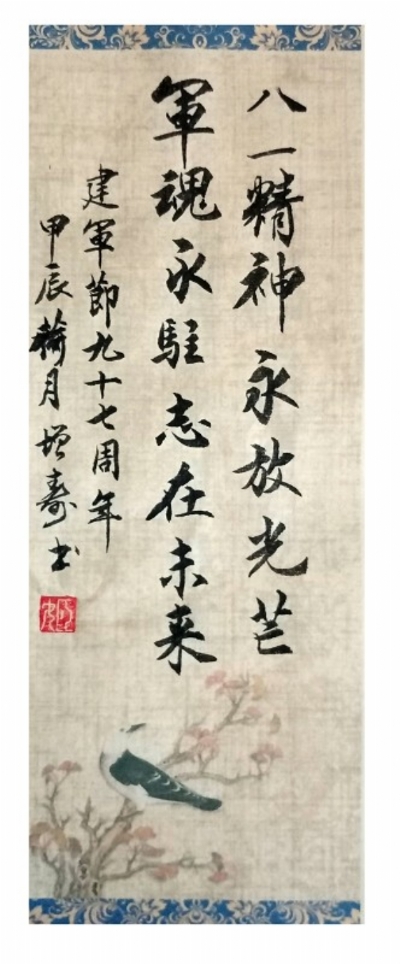 八一精神永放光芒
軍魂永駐志在未来
建軍節九十七周年
甲辰荷月增壽书